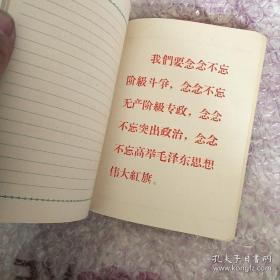 我們要念念不忘
阶級斗爭，念念不忘
无产阶級专政，念念
不忘突出政治，念念
不忘高举毛泽东思想
伟大紅旗。
孔夫子旧书网